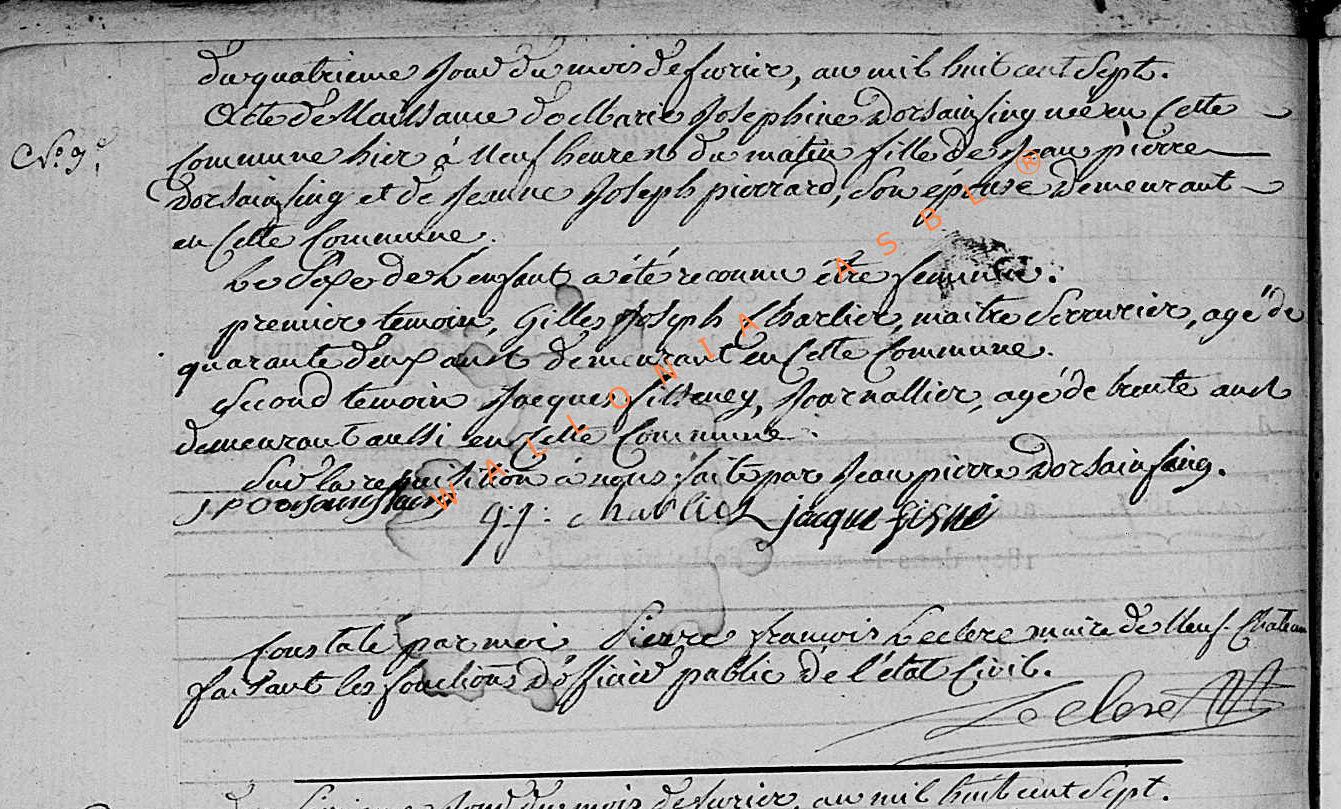 du quatrieme Jour du mois de fevrier, an mil huit cent Sept.
Acte de Naissance de Marie Josephine Dorsainfaing née en Cette
No. 9.
Commune hier à Neuf heures du matin fille de Jean pierre
Dorsainfaing et de Jeanne Joseph pierrard, Son épouse demeurant
en Cette Commune.
Le Sexe de L'enfant a été reconnu être feminin.
premier temoin, Gilles Joseph Charlier, maitre Serrurier, agé de
quarante deux ans et demeurant en Cette Commune.
Second temoin Jacques, Journallier, agé de trente ans et
demeurant aussi en Cette Commune.
Sur la requisition à nous faite par Jean pierre Dorsainfaing.
J P Dorsainfaing g: j: charlier jacque
Constaté par moi Pierre françois Leclerc maire de Neuf-Chateau
faisant les fonctions d'officier public de l'état Civil.
Leclerc
WALLONIA ASBL ®
Jour du mois de fevrier, an mil huit cent Sept.